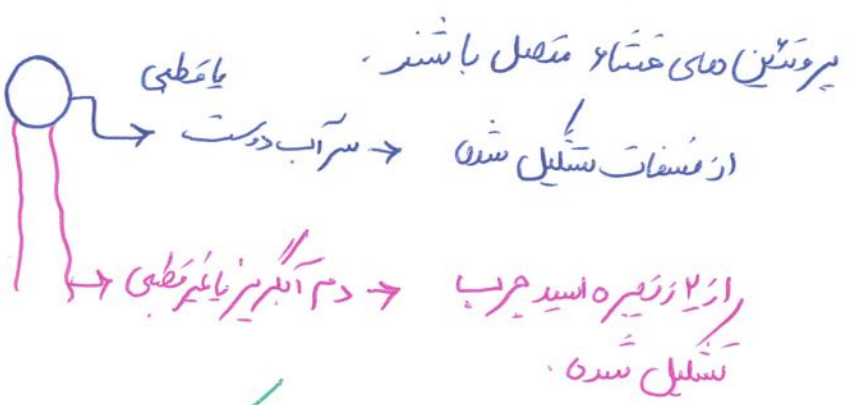 پروتئین های غشاء متصل باشند.
یا قطبی
سر آب دوست → از فسفات تشکیل شده
دم آبگریز یا غیر قطبی → از ۲ زنجیره اسید چرب
تشکیل شده.